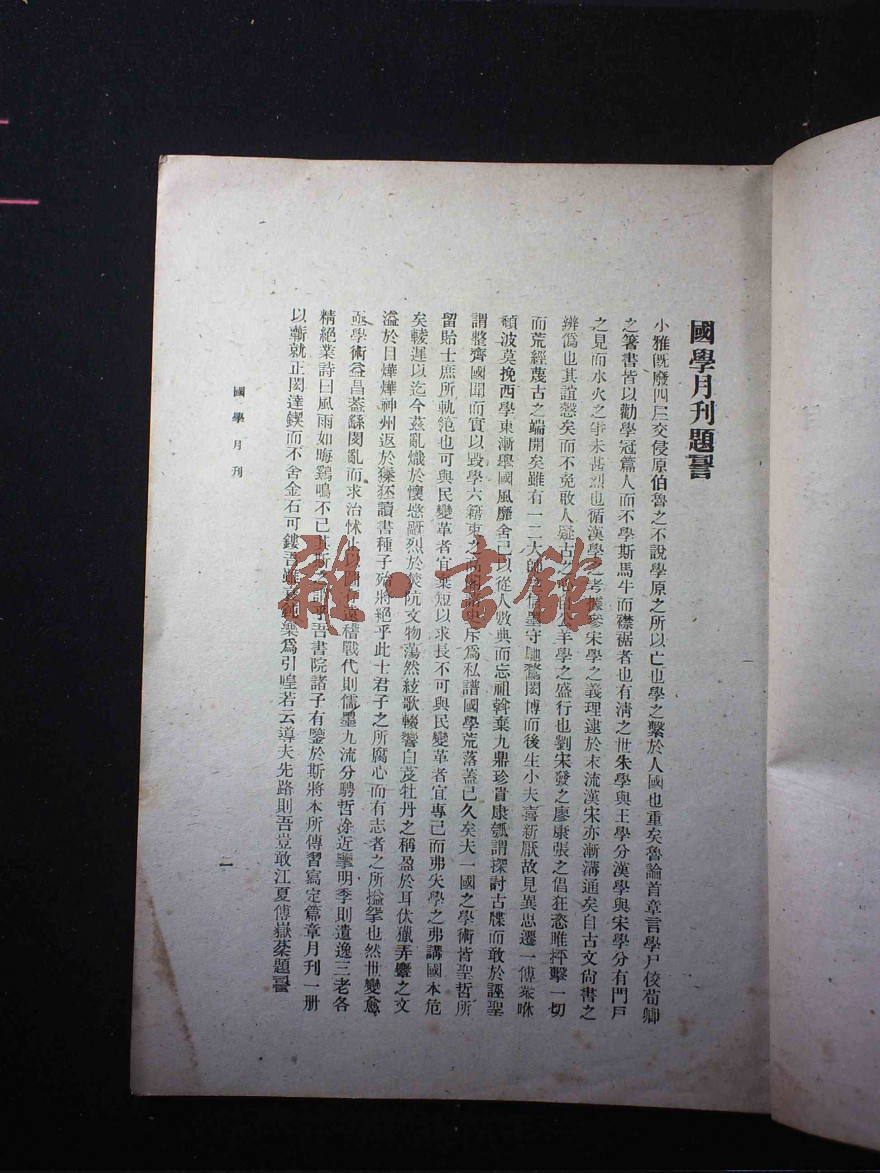 國學月刊題䛠
小雅旣廢四㠯交侵原伯魯之不說學原之所以亡也學之繫於人國也重矣魯論首章言學尸佼荀卿
之箸書皆以勸學冠篇人而不學斯馬牛而襟裾者也有淸之世朱學與王學分漢學與宋學分有門戶
之見而水火之爭未甚烈也循漢學之考據參宋學之義理逮於末流漢宋亦漸溝通矣自古文尙書之
辨僞也其誼愨矣而不免啟人疑古之 公羊學之盛行也劉宋發之廖康張之倡狂恣睢抨擊一切
而荒經蔑古之端開矣雖有一二大師 墨守 騖閎博而後生小夫喜新厭故見異思遷一傅衆咻
頹波莫挽西學東漸舉國風靡舍己以從人數典而忘祖斡棄九鼎珍貴康瓠謂探討古牒而敢於誣聖
謂整齊國聞而實以毀學六籍束之高閣 史斥爲私譜國學荒落蓋已久矣夫一國之學術皆聖哲所
留貽士庶所軌範也可與民變革者宜棄短以求長不可與民變革者宜專己而弗失學之弗講國本危
矣輘遲以迄今茲亂熾於懷愍 烈於 阬文物蕩然絃歌輟響白芨牡丹之稱盈於耳伏獵弄麞之文
溢於目燁燁神州返於獉狉讀書種子殆將絕乎此士君子之所腐心而有志者之所搤掔也然世變愈
亟學術益昌葢繇閔亂而求治怵 遠稽戰代則儒墨九流分騁哲涂近擥明季則遺逸三老各
精絕業詩曰風雨如晦鷄鳴不已其斯之 乎吾書院諸子有鑒於斯將本所傳習寫定篇章月刊一册
以蘄就正閎達鍥而不舍金石可鏤吾雖 樂爲引喤若云導夫先路則吾豈敢江夏傅嶽棻題䛠
國學月刊
一
雅·書館